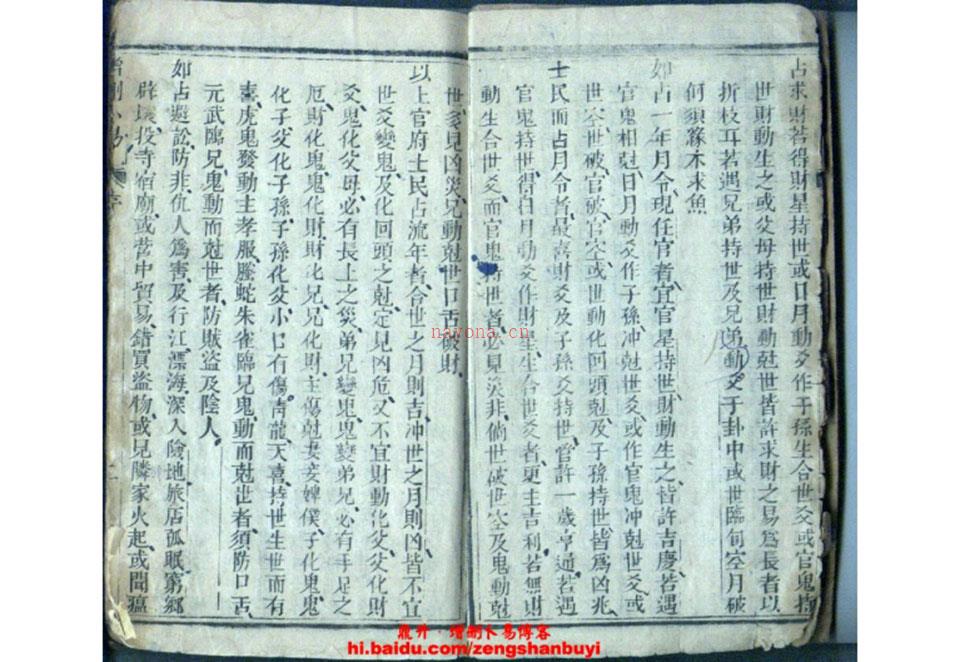 占求財若得財星持世或日月動爻作子孫生合世爻或官鬼持
世財動生之或父母持世財動尅世皆許求財之易爲長者以
折枝耳若遇兄弟持世及兄弟動爻于卦中或世臨旬空月破
何須緣木求魚
如占一年月令現任官者宜官星持世財動生之皆許吉慶若遇
官鬼相尅日月動爻作子孫冲尅世爻或作官鬼冲尅世爻或
世空世破官破官空或世動化回頭尅及子孫持世皆爲凶兆
士民而占月令者最喜財爻及子孫爻持世管許一歲亨通若遇
官鬼持世得日月動爻作財星生合世爻者更主吉利若無財
動生合世爻而官鬼持世者必見災非倘世破世空及鬼動尅
世多見凶災兄動尅世口舌破財
以上官府士民占流年者合世之月則吉冲世之月則凶皆不宜
世爻變鬼及化回頭之尅定見凶危又不宜財動化父父化財
爻鬼化父母必有長上之災弟兄變鬼鬼變弟兄必有手足之
厄財化鬼鬼化財財化兄兄化財主傷尅妻妾婢僕子化鬼鬼
化子父化子孫子孫化父小口有傷青龍天喜持世生世而有
喜虎鬼發動主孝服騰蛇朱雀臨兄鬼動而尅世者須防口舌
元武臨兄鬼動而尅世者防賊盜及陰人
如占避訟防非仇人爲害及行江漂海深入險地旅店孤眠窮鄉
僻壤投寺宿廟或昔中貿易錯買盜物或見隣家火起或聞瘟
增刪卜易
序
nayona.cn
鼎升·增刪卜易博客
hi.baidu.com/zengshanbuyi